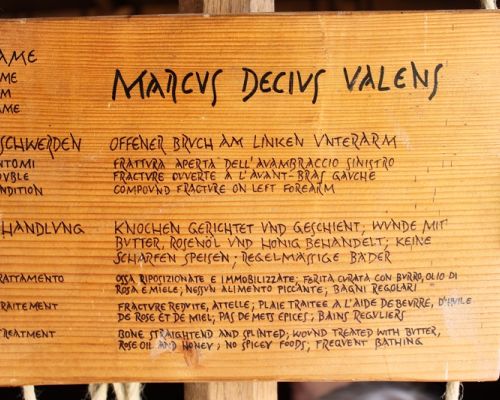 AME
ME MARCVS DECIVS VALENS
M
AME
SCHWERDEN OFFENER BRVCH AM LINKEN VNTERARM
NTOMI FRATTVRA APERTA DELL'AVAMBRACCIO SINISTRO
OVBLE FRACTVRE OVVERTE À L'AVANT-BRAS GAVCHE
NDITION COMPOVND FRACTVR ON LEFT FOREARM
HANDLVNG KNOCHEN GERICHTET VND GESCHIENT; WVNDE MIT
BVTTER, ROSENÖL VND HONIG BEHANDELT; KEINE
SCHARFEN SPEISEN; REGELMÄSSIGE BÄDER
RATTAMENTO OSSA RIPOSIZIONATE E IMMOBILIZZATE; FERITA CVRATA CON BVRRO, OLIO DI
ROSA E MIELE; NESSVN ALIMENTO PICCANTE; BAGNI REGOLARI
RAITEMENT FRACTVRE REDVITE, ATTELLE; PLAIE TRAITEE A L'AIDE DE BEVRRE, D'HVILE
DE ROSE ET DE MIEL; PAS DE METS EPICES; BAINS REGVLIERS
REATMENT BONE STRAIGHTEND AND SPLINTED; WOVND TREATED WITH BVTTER,
ROSE OIL AND HONEY; NO SPICEY FOODS; FREQVENT BATHING